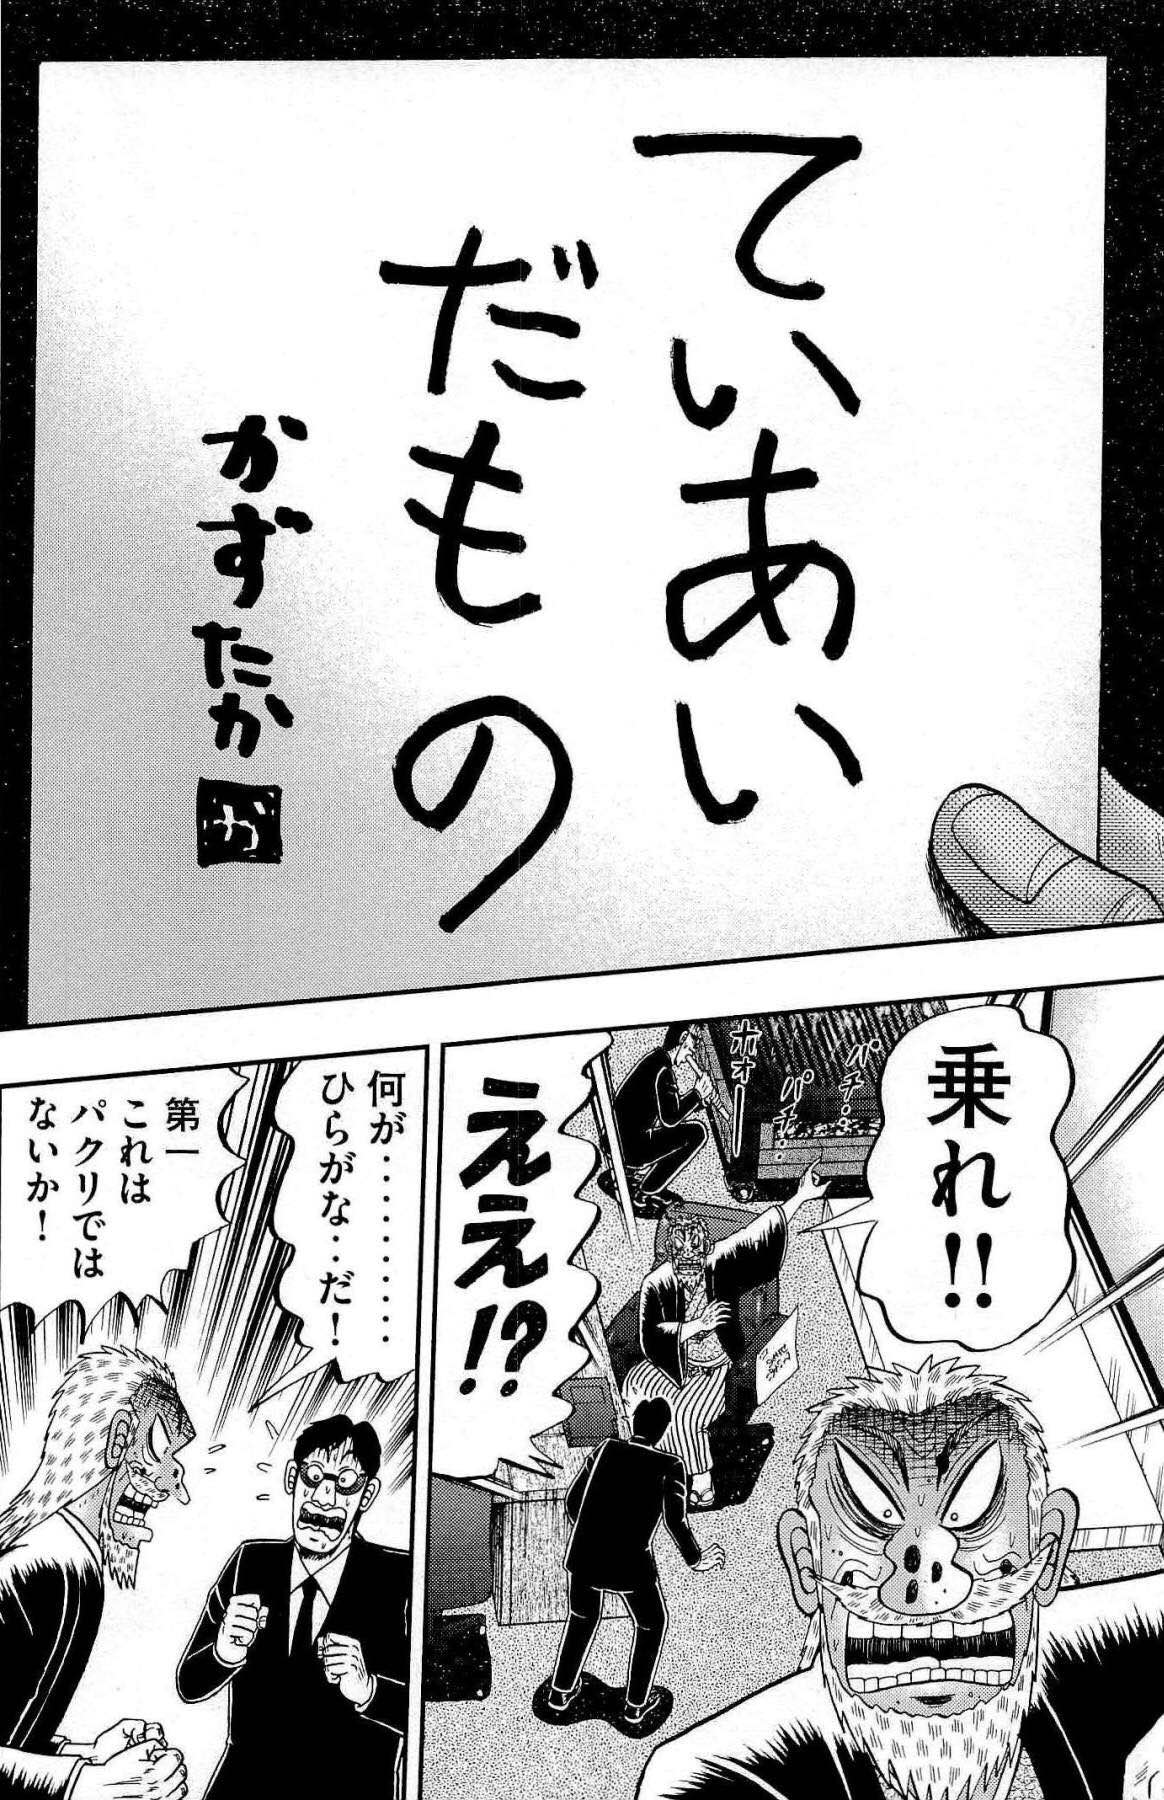 ていあい
だもの
かずたか
か
乗れ!!
パチ‥
パチ‥
ホオー
ええ!?
何が‥‥‥‥‥‥
ひらがな‥だ!
第一
これは
パクリでは
ないか!